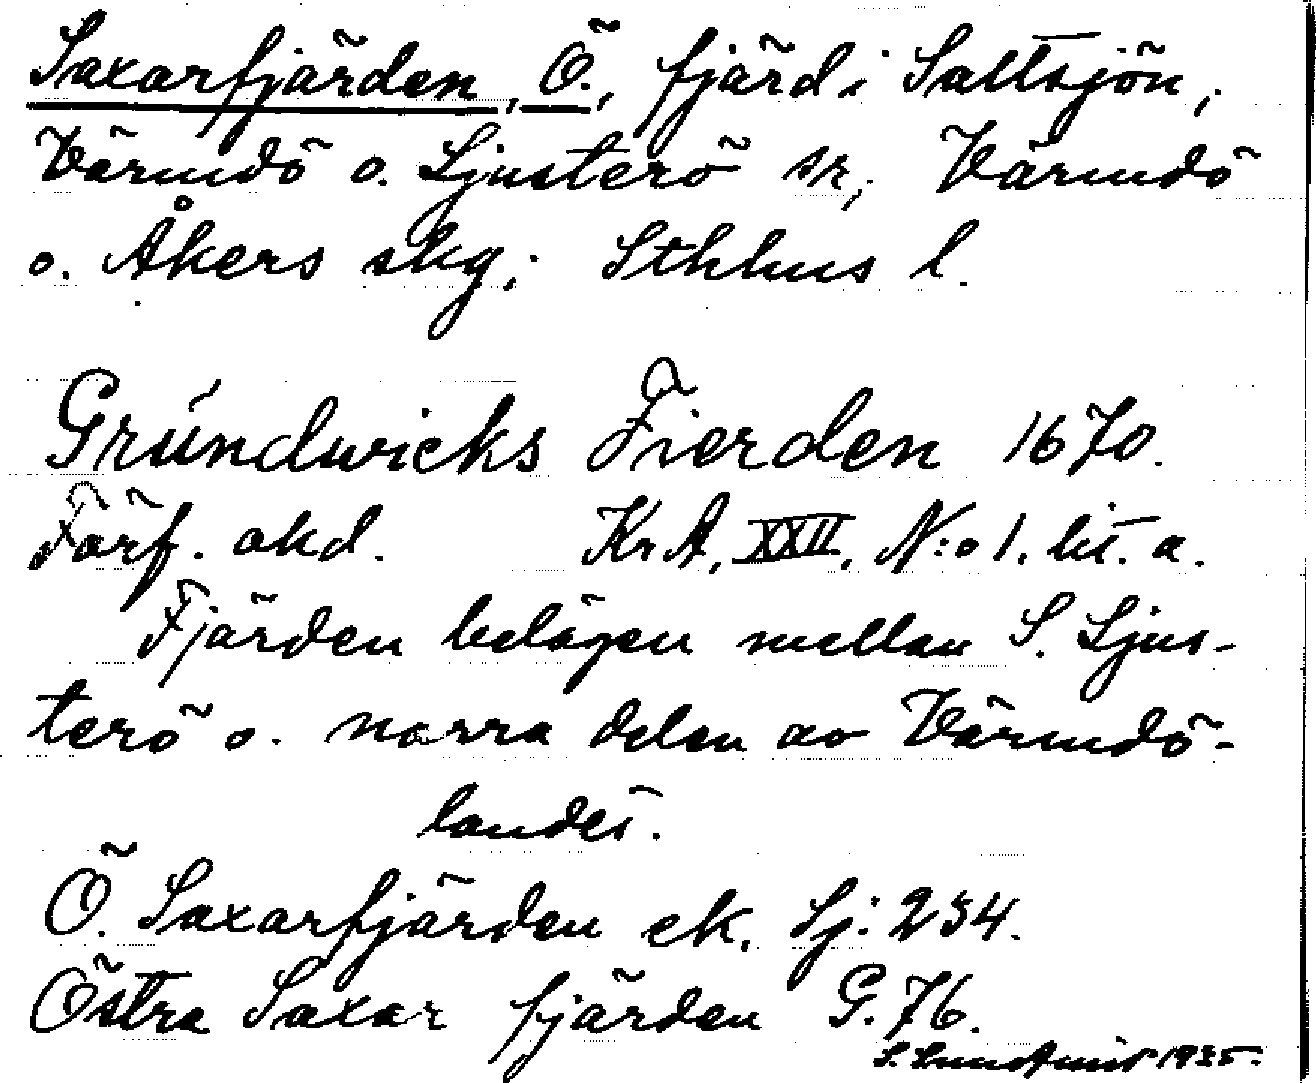 Saxarfjärden, Ö., fjärd i Saltsjön,
Värmdö o. Ljusterö sr, Värmdö
o. Åkers skg; Sthlms l.
Gründwicks Fierden 1670.
Förf. okd. KrA, XXII, N:o 1. lit. a.
Fjärden belägen mellan S. Ljus-
terö o. norra delen av Värmdö-
landet.
Ö. Saxarfjärden ek. Sj: 234.
Östra Saxar fjärden G. 76.
S. 1935.